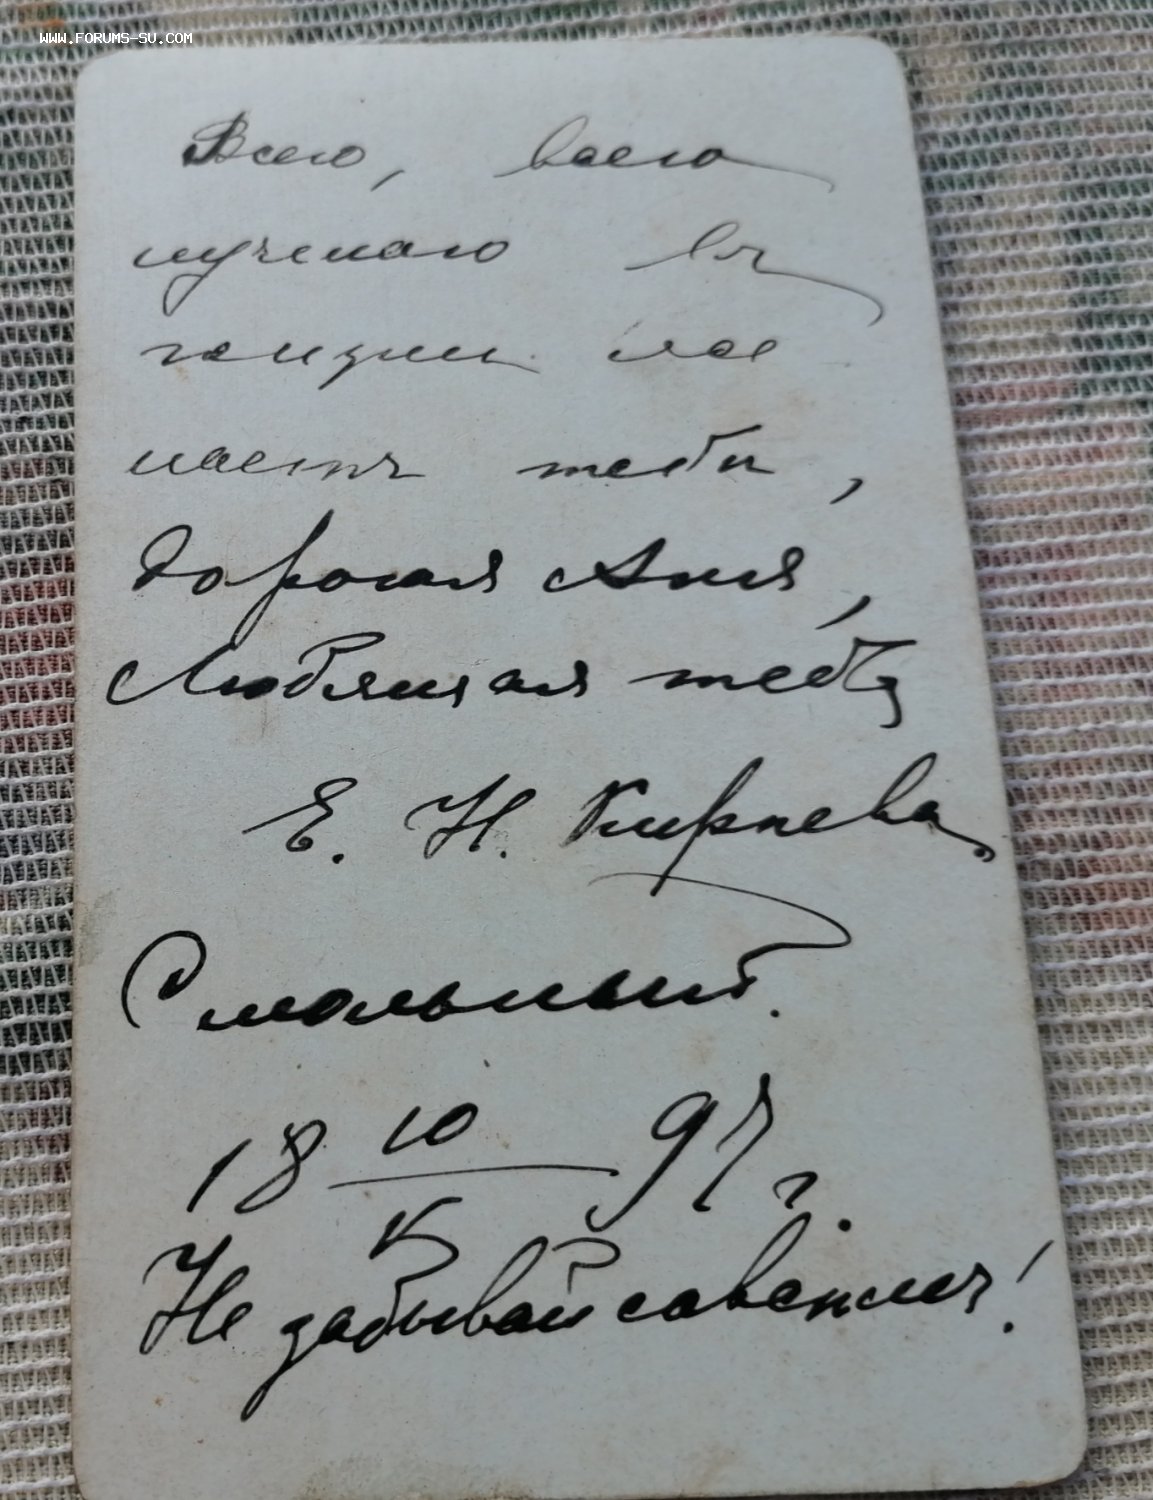 www.forums-su.com
Всего, всего
лучшаго въ
жизни же
лаетъ тебѣ,
дорогая Аня,
Любящая тебя
Е. Н. Кирѣева.
Смольный.
18 10/V 97 г.
Не забывай совсѣмъ!